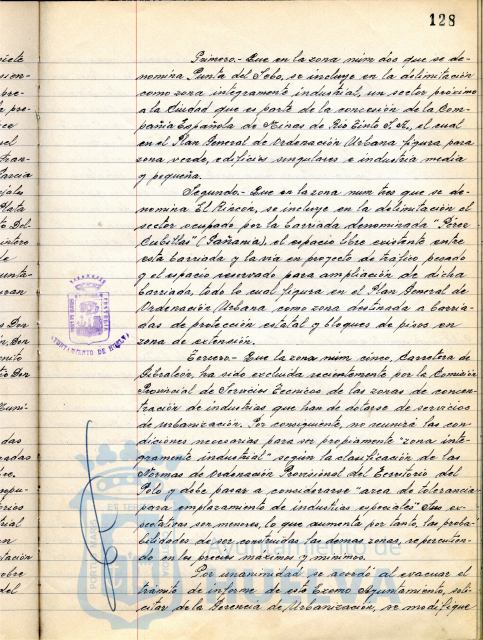 128
Primero.- Que en la zona núm dos que se de-
nomina Punta del Sebo, se incluye en la delimitación
como zona integramente industrial, un sector próximo
a la Ciudad que es parte de la concesión de la Com-
pañía Española de Minas de Rio Tinto S.A., el cual
en el Plan General de Ordenación Urbana figura para
zona verde, edificios singulares e industria media
y pequeña.
Segundo.- Que en la zona num tres que se de-
nomina El Rincón, se incluye en la delimitación el
sector ocupado por la barriada denominada "Pérez
Cubillas" (Tartania), el espacio libre existente entre
esta barriada y la vía en proyecto de tráfico pesado
y el espacio reservado para ampliación de dicha
barriada, todo lo cual figura en el Plan General de
Ordenación Urbana como zona destinada a barria-
das de protección estatal y bloques de pisos en
zona de extensión.
Tercero.- Que la zona núm cinco, Carretera de
Gibraleón, ha sido excluida recientemente por la Comisión
Provincial de Servicios Tecnicos de las zonas de concen-
tración de industrias que han de dotarse de servicios
de urbanización. Por consiguiente, no reunirá las con-
diciones necesarias, para ser propiamente "zona inte-
gramente industrial" según la clasificación de las
Normas de Ordenación Provisional del Territorio del
Polo y debe pasar a considerarse "area de tolerancia
para emplazamiento de industrias especiales". Sus ex-
pectativas, ser menores, lo que aumenta por tanto, las proba-
bilidades de ser construidas las demas zonas, repercutien-
do en los precios máximos y mínimos.
Por unanimidad se acordó al evacuar el
trámite de informe de este Excmo Ayuntamiento, soli-
citar de la Gerencia de Urbanización, se modifique
AYUNTAMIENTO DE HUELVA
Ayuntamiento de
HUELVA